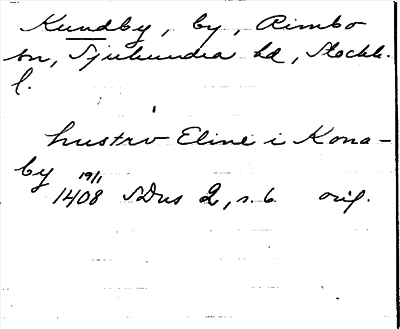 Kundby, by, Rimbo
sn, Sjuhundra hd, Stockh.
l.
hustrv Eline i Kona-
by 19/1
1408 SDns 2, s. 6 orig.